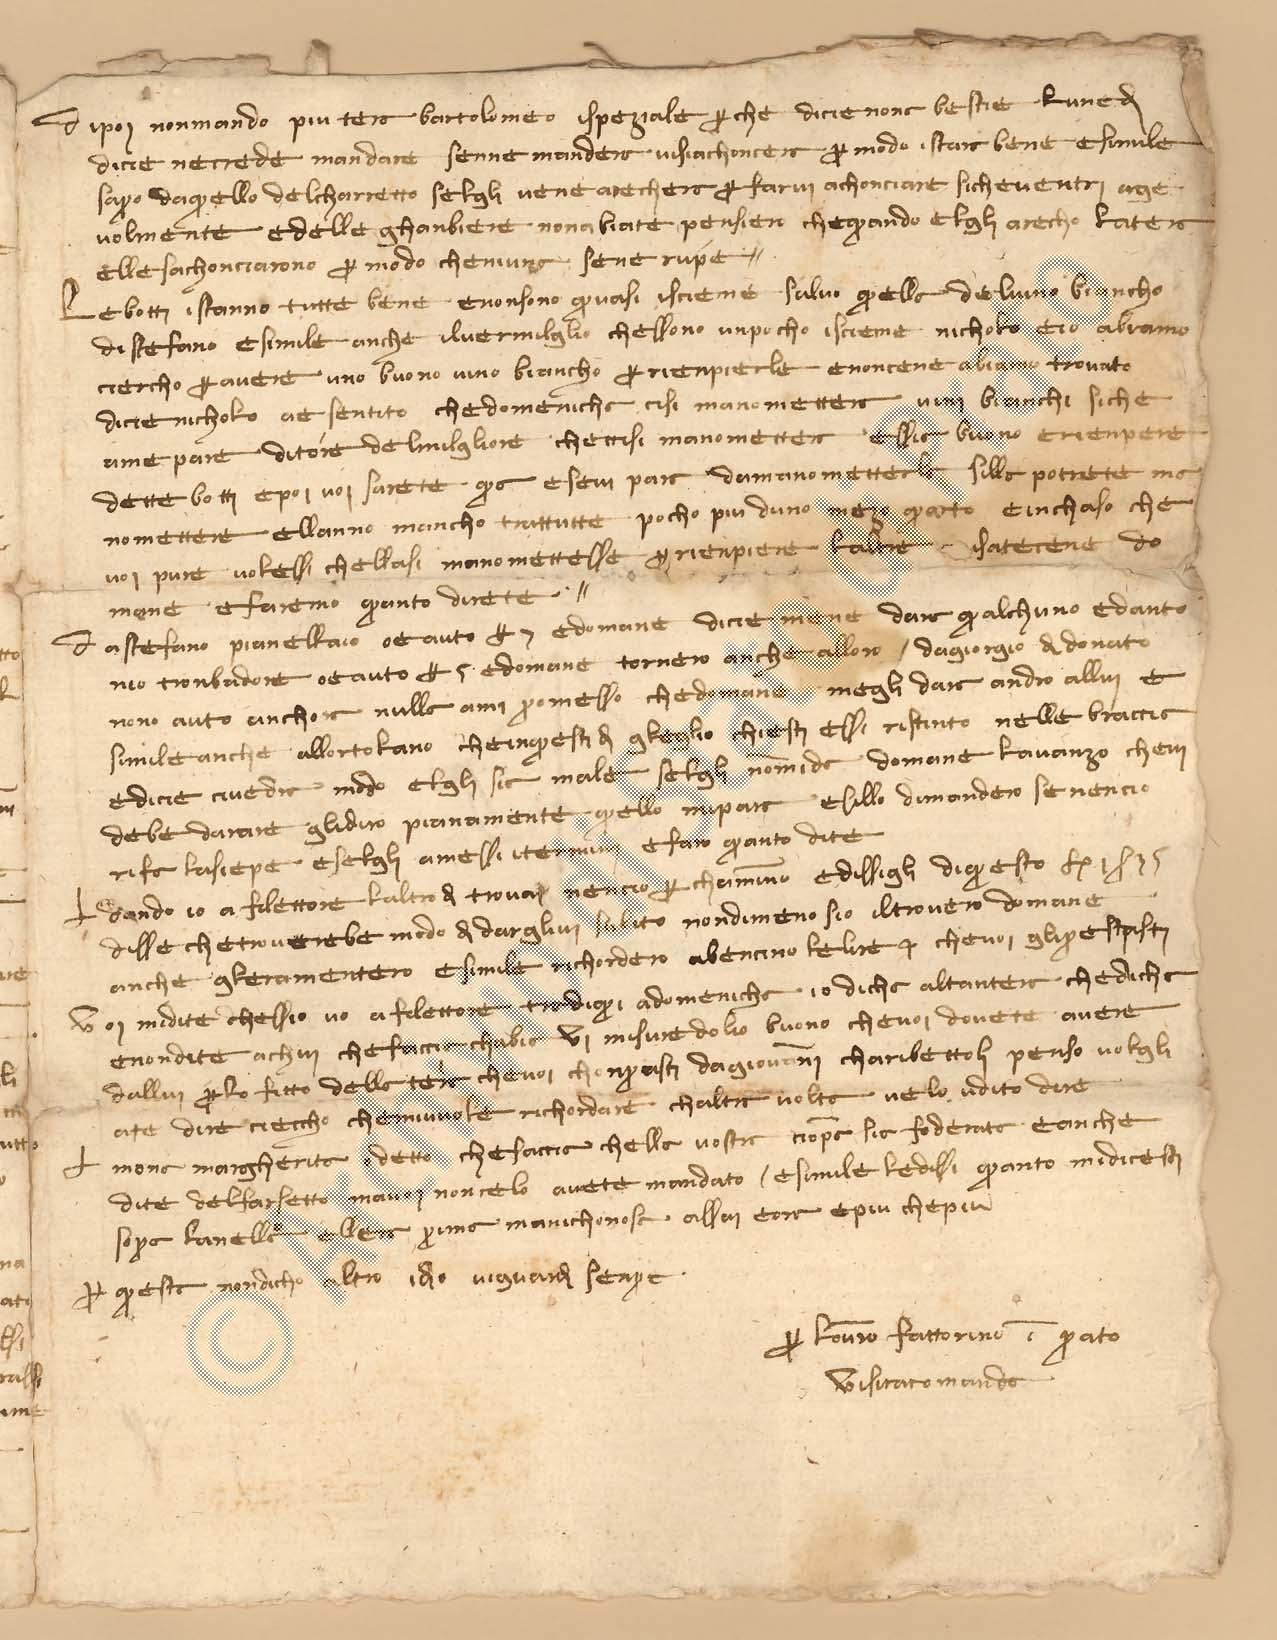 dipoi nonmando piu tera bartolomeo ispeziale p che dicie nona bestie lunedi
dicie necrede mandare senne mandera visiachoncera p modo istara bene esimile
sapo daquello delcharretto selgli vene arechera p farvi achonciare sicheventri age
volmente edelle ghanbiere nonabiate pensiero chequando elgli arecho laterra
ellesachonciarono p modo cheniuna sene rupe //
Lebotti istanno tutte bene enonsono quasi iscieme salvo quella delvino biancho
distefano esimile anche ilvermilglio chessono unpocho iscieme nicholo eio abiamo
ciercho p avere uno buono vino biancho p rienpierle enoncene abiamo trovato
dicie nicholo ae sentito chedomenicha cisi manomettera vini bianchi siche
ame pare ditore delmilgliore chettisi manomettera essia buono erienpere
dette botti epoi voi sarete qua esevi para damanometterla silla potrete ma
nomettere ellanno mancho truttutte pocho piu duno mezo quarto einchaso che
voi pure volessi chellasi manomettesse p rienpiere laltre isatecene do
mane efaremo quanto direte //
dastefano pianellaio oe auto 7 edomane dicie mene dara qualchuno edanto
nio tronbadore oe auto 5 edomane tornero anche alloro / dagiorgio di donato
nono auto anchora nulla ami promesso chedomane megli dara andro allui e
simile anche allortolano cheinquesti di glieglio chiesti essi ristinto nelle braccia
edicie civedra modo elgli sia male selgli nommida domane lavanzo chevi
debe darare glidiro pianamente quello mipara esillo dimandero senencio
rifa lasiepe eselgli amessi itermini efaro quanto dite
Quando io afilettore laltrodi trovai nencio p chamino edissigli diquesto
disse chetroverebe modo di darglivi subito nondimeno sio iltrovero domane
anche glieramentero esimile richordero abencino lelire 4 chevoi gliprestasti
Voi midite chessio vo afilettore trodiqui adomenicha io dicha altantera chedicha
enondite achui chefaccia chabia VI misuredolio buono chevoi dovete avere
dallui p lo fitto della terra chevoi chonprasti dagiovanni charibettoli penso volgli
ate dire ciecchо chemivuole richordare chaltra volta velo udito dire
A mona margherita o detto chefaccia chella vostra cioppa sia foderata eanche
dite delfarsetto mavoi noncelo avete mandato / esimile ledissi quanto midicesti
sopra lanella ellera prima manichonosc assai eora epiu chepiu
p questa nondicho altro idio viguardi senpre

p lonro fattorino i prato
visiracomanda